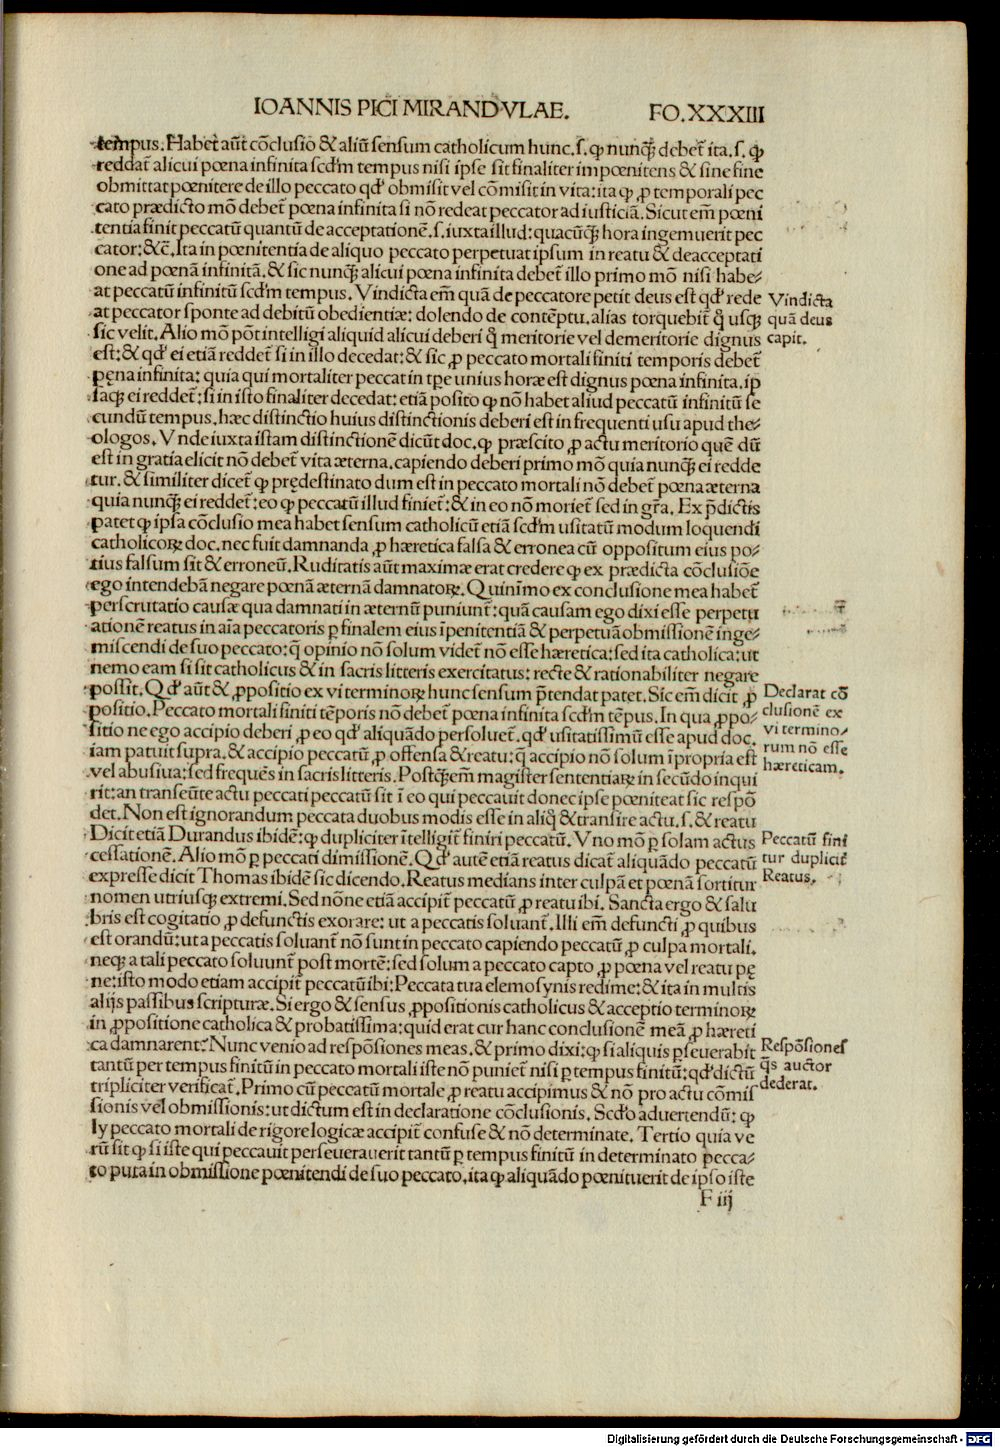 IOANNIS PICI MIRANDVLAE. FO.XXXIII
tempus. Habet aūt cōclusio & aliū sensum catholicum hunc.s.ꝙ nunq̄ꝫ debet̄ ita.s.ꝙ
reddat̄ alicui pœna infinita scd̄m tempus nisi ipse sit finaliter impœnitens & sine fine
obmittat pœnitere de illo peccato qd̄ obmisit vel cōmisit in vita: ita ꝙ ꝓ temporali pec
cato prædicto mō debet̄ pœna infinita si nō redeat peccator ad iusticiā. Sicut em̄ pœni
tentia finit peccatū quantū de acceptationē.s.iuxta illud: quacūq̄ꝫ hora ingemuerit pec
cator: &c̄. Ita in pœnitentia de aliquo peccato perpetuat ipsum in reatu & deacceptati
one ad pœnā infinitā. & sic nunq̄ꝫ alicui pœna infinita debet̄ illo primo mō nisi habe⸗
at peccatū infinitū scd̄m tempus. Vindicta em̄ quā de peccatore petit deus est qd̄ rede
Vindicta
at peccator sponte ad debitū obedientiæ: dolendo de contēptu. alias torquebit̄ q̄ usq̄ꝫ
quā deus
sic velit. Alio mō pōt intelligi aliquid alicui deberi q̄ meritorie vel demeritorie dignus
capit.
est: & qd̄ ei etiā reddet̄ si in illo decedat: & sic ꝓ peccato mortali finiti temporis debet̄
pęna infinita: quia qui mortaliter peccat in tp̄e unius horæ est dignus pœna infinita. ip
saq̄ꝫ ei reddet̄: si in isto finaliter decedat: etiā posito ꝙ nō habet aliud peccatū infinitū se
cundū tempus. hæc distinctio huius distinctionis deberi est in frequenti usu apud the⸗
ologos. Vnde iuxta istam distinctionē dicūt doc. ꝙ præscito ꝓ actu meritorio quē dū
est in gratia elicit nō debet̄ vita æterna. capiendo deberi primo mō quia nunq̄ꝫ ei redde
tur. & similiter dicet̄ ꝙ prędestinato dum est in peccato mortali nō debet̄ pœna æterna
quia nunq̄ꝫ ei reddet̄: eo ꝙ peccatū illud finiet̄: & in eo nō moriet̄ sed in gr̄a. Ex p̄dictis
patet ꝙ ipsa cōclusio mea habet sensum catholicū etiā scd̄m usitatū modum loquendi
catholicoꝝ doc. nec fuit damnanda ꝓ hæretica falsa & erronea cū oppositum eius po⸗
tius falsum sit & erroneū. Ruditatis aūt maximæ erat credere ꝙ ex prædicta cōclusiōe
ego intendebā negare pœnā æternā damnatoꝝ. Quinīmo ex conclusione mea habet̄
perscrutatio causæ qua damnati in æternū puniunt̄: quā causam ego dixi esse perpetu
ationē reatus in aīa peccatoris ꝑ finalem eius īpenitentiā & perpetuā obmissionē inge⸗
miscendi de suo peccato: q̄ opinio nō solum videt̄ nō esse hæretica: sed ita catholica: ut
nemo eam si sit catholicus & in sacris litteris exercitatus: recte & rationabiliter negare
possit. Qd̄ aūt & ꝓpositio ex vi terminoꝝ hunc sensum p̄tendat patet. Sic em̄ dicit ꝓ
Declarat cō
positio. Peccato mortali finiti tēporis nō debet̄ pœna infinita scd̄m tēpus. In qua ꝓpo⸗
clusionē ex
sitione ego accipio deberi ꝓ eo qd̄ aliquādo persoluet̄. qd̄ usitatissimū esse apud doc.
vi termino⸗
iam patuit supra. & accipio peccatū ꝓ offensa & reatu: q̄ accipio nō solum īpropria est
rum nō esse
vel abusiua: sed frequēs in sacris litteris. Postq̄ꝫ em̄ magister sententiaꝝ in secūdo inqui
hæreticam.
rit: an transeūte actu peccati peccatū sit ī eo qui peccauit donec ipse pœniteat sic respō
det. Non est ignorandum peccata duobus modis esse in aliq̄ & transire actu.s.& reatu
Dicit etiā Durandus ibidē: ꝙ dupliciter ītelligit̄ finiri peccatū. Vno mō ꝑ solam actus
Peccatū fini
cessationē. Alio mō ꝑ peccati dimissionē. Qd̄ autē etiā reatus dicat̄ aliquādo peccatū
tur duplicit̄
expresse dicit Thomas ibidē sic dicendo. Reatus medians inter culpā et pœnā sortitur
Reatus.
nomen utriusq̄ꝫ extremi. Sed nōne etiā accipit̄ peccatū ꝓ reatu ibi. Sancta ergo & salu
bris est cogitatio ꝓ defunctis exorare: ut a peccatis soluant̄. Illi em̄ defuncti ꝓ quibus
est orandū: ut a peccatis soluant̄ nō sunt in peccato capiendo peccatū ꝓ culpa mortali.
neqꝫ a tali peccato soluunt̄ post mortē: sed solum a peccato capto ꝓ pœna vel reatu pę
ne: isto modo etiam accipit̄ peccatū ibi: Peccata tua elemosynis redime: & ita in multis
alijs passibus scripturæ. Si ergo & sensus ꝓpositionis catholicus & acceptio terminoꝝ
in ꝓpositione catholica & probatissima: quid erat cur hanc conclusionē meā ꝓ hæreti
ca damnarent? Nunc venio ad respōsiones meas. & primo dixi: ꝙ si aliquis ꝑseuerabit
Respōsiones
tantū per tempus finitū in peccato mortali iste nō puniet̄ nisi ꝑ tempus finitū: qd̄ dictū
q̄s auctor
tripliciter verificat̄. Primo cū peccatū mortale ꝓ reatu accipimus & nō pro actu cōmis
dederat.
sionis vel obmissionis: ut dictum est in declaratione cōclusionis. Scd̄o aduertendū: ꝙ
ly peccato mortali de rigore logicæ accipit̄ confuse & nō determinate. Tertio quia ve
rū sit ꝙ si iste qui peccauit perseuerauerit tantū ꝑ tempus finitū in determinato pecca⸗
to puta in obmissione pœnitendi de suo peccato. ita ꝙ aliquādo pœnituerit de ipso iste
F iij
Digitalisierung gefördert durch die Deutsche Forschungsgemeinschaft - DFG